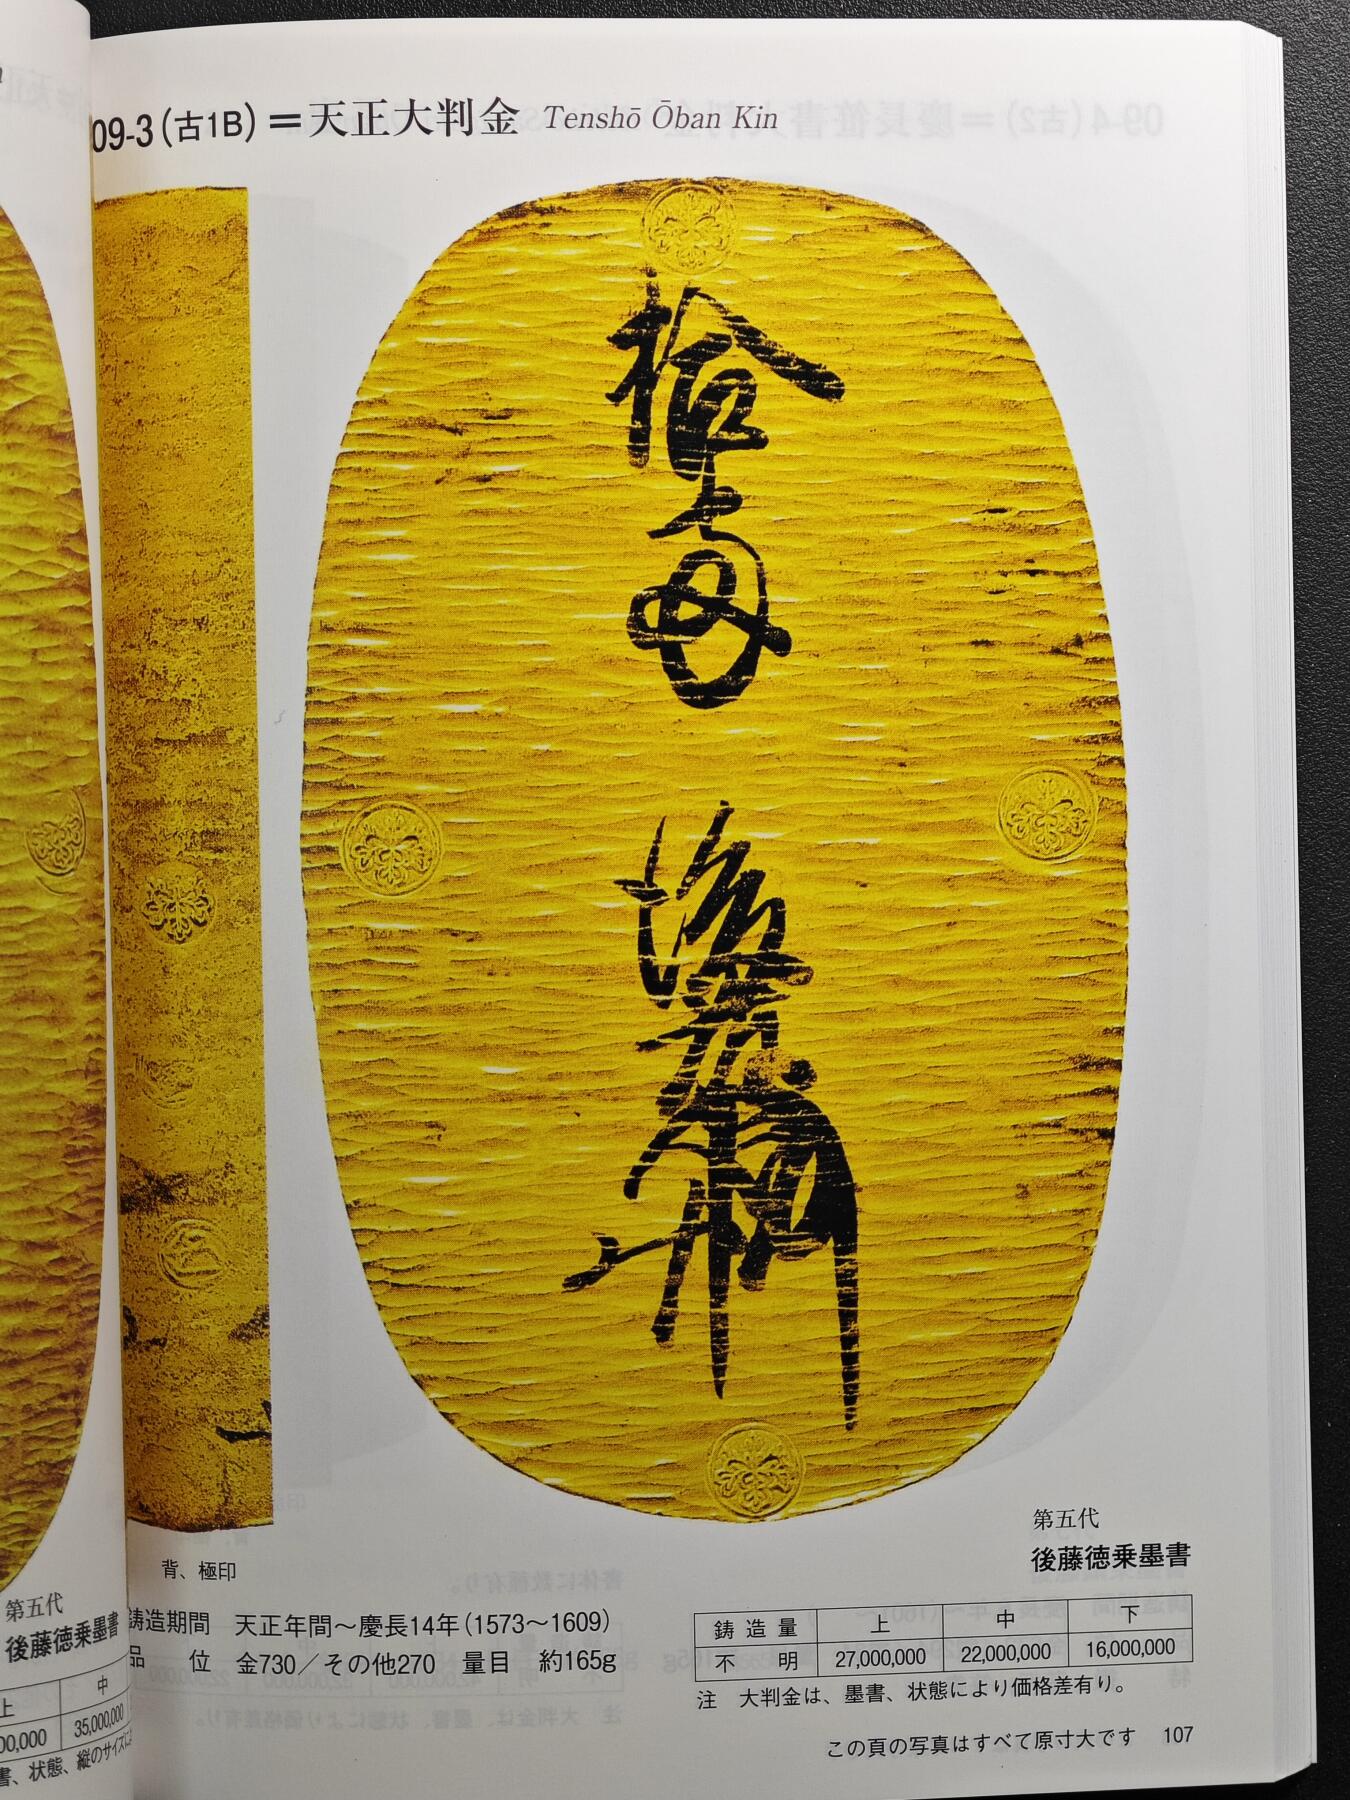 09-3(古1B)=天正大判金 Tenshō Ōban Kin
拾両 後藤
背、極印
第五代
後藤徳乗墨書
鋳造期間 天正年間~慶長14年(1573~1609)
品 位 金730/その他270 量目 約165g
鋳造量 上 中 下
不 明 27,000,000 22,000,000 16,000,000
注 大判金は、墨書、状態により価格差有り。
この頁の写真はすべて原寸大です 107
第五代
後藤徳乗墨書
上 中
00,000 35,000,000
書、状態、縦のサイズに